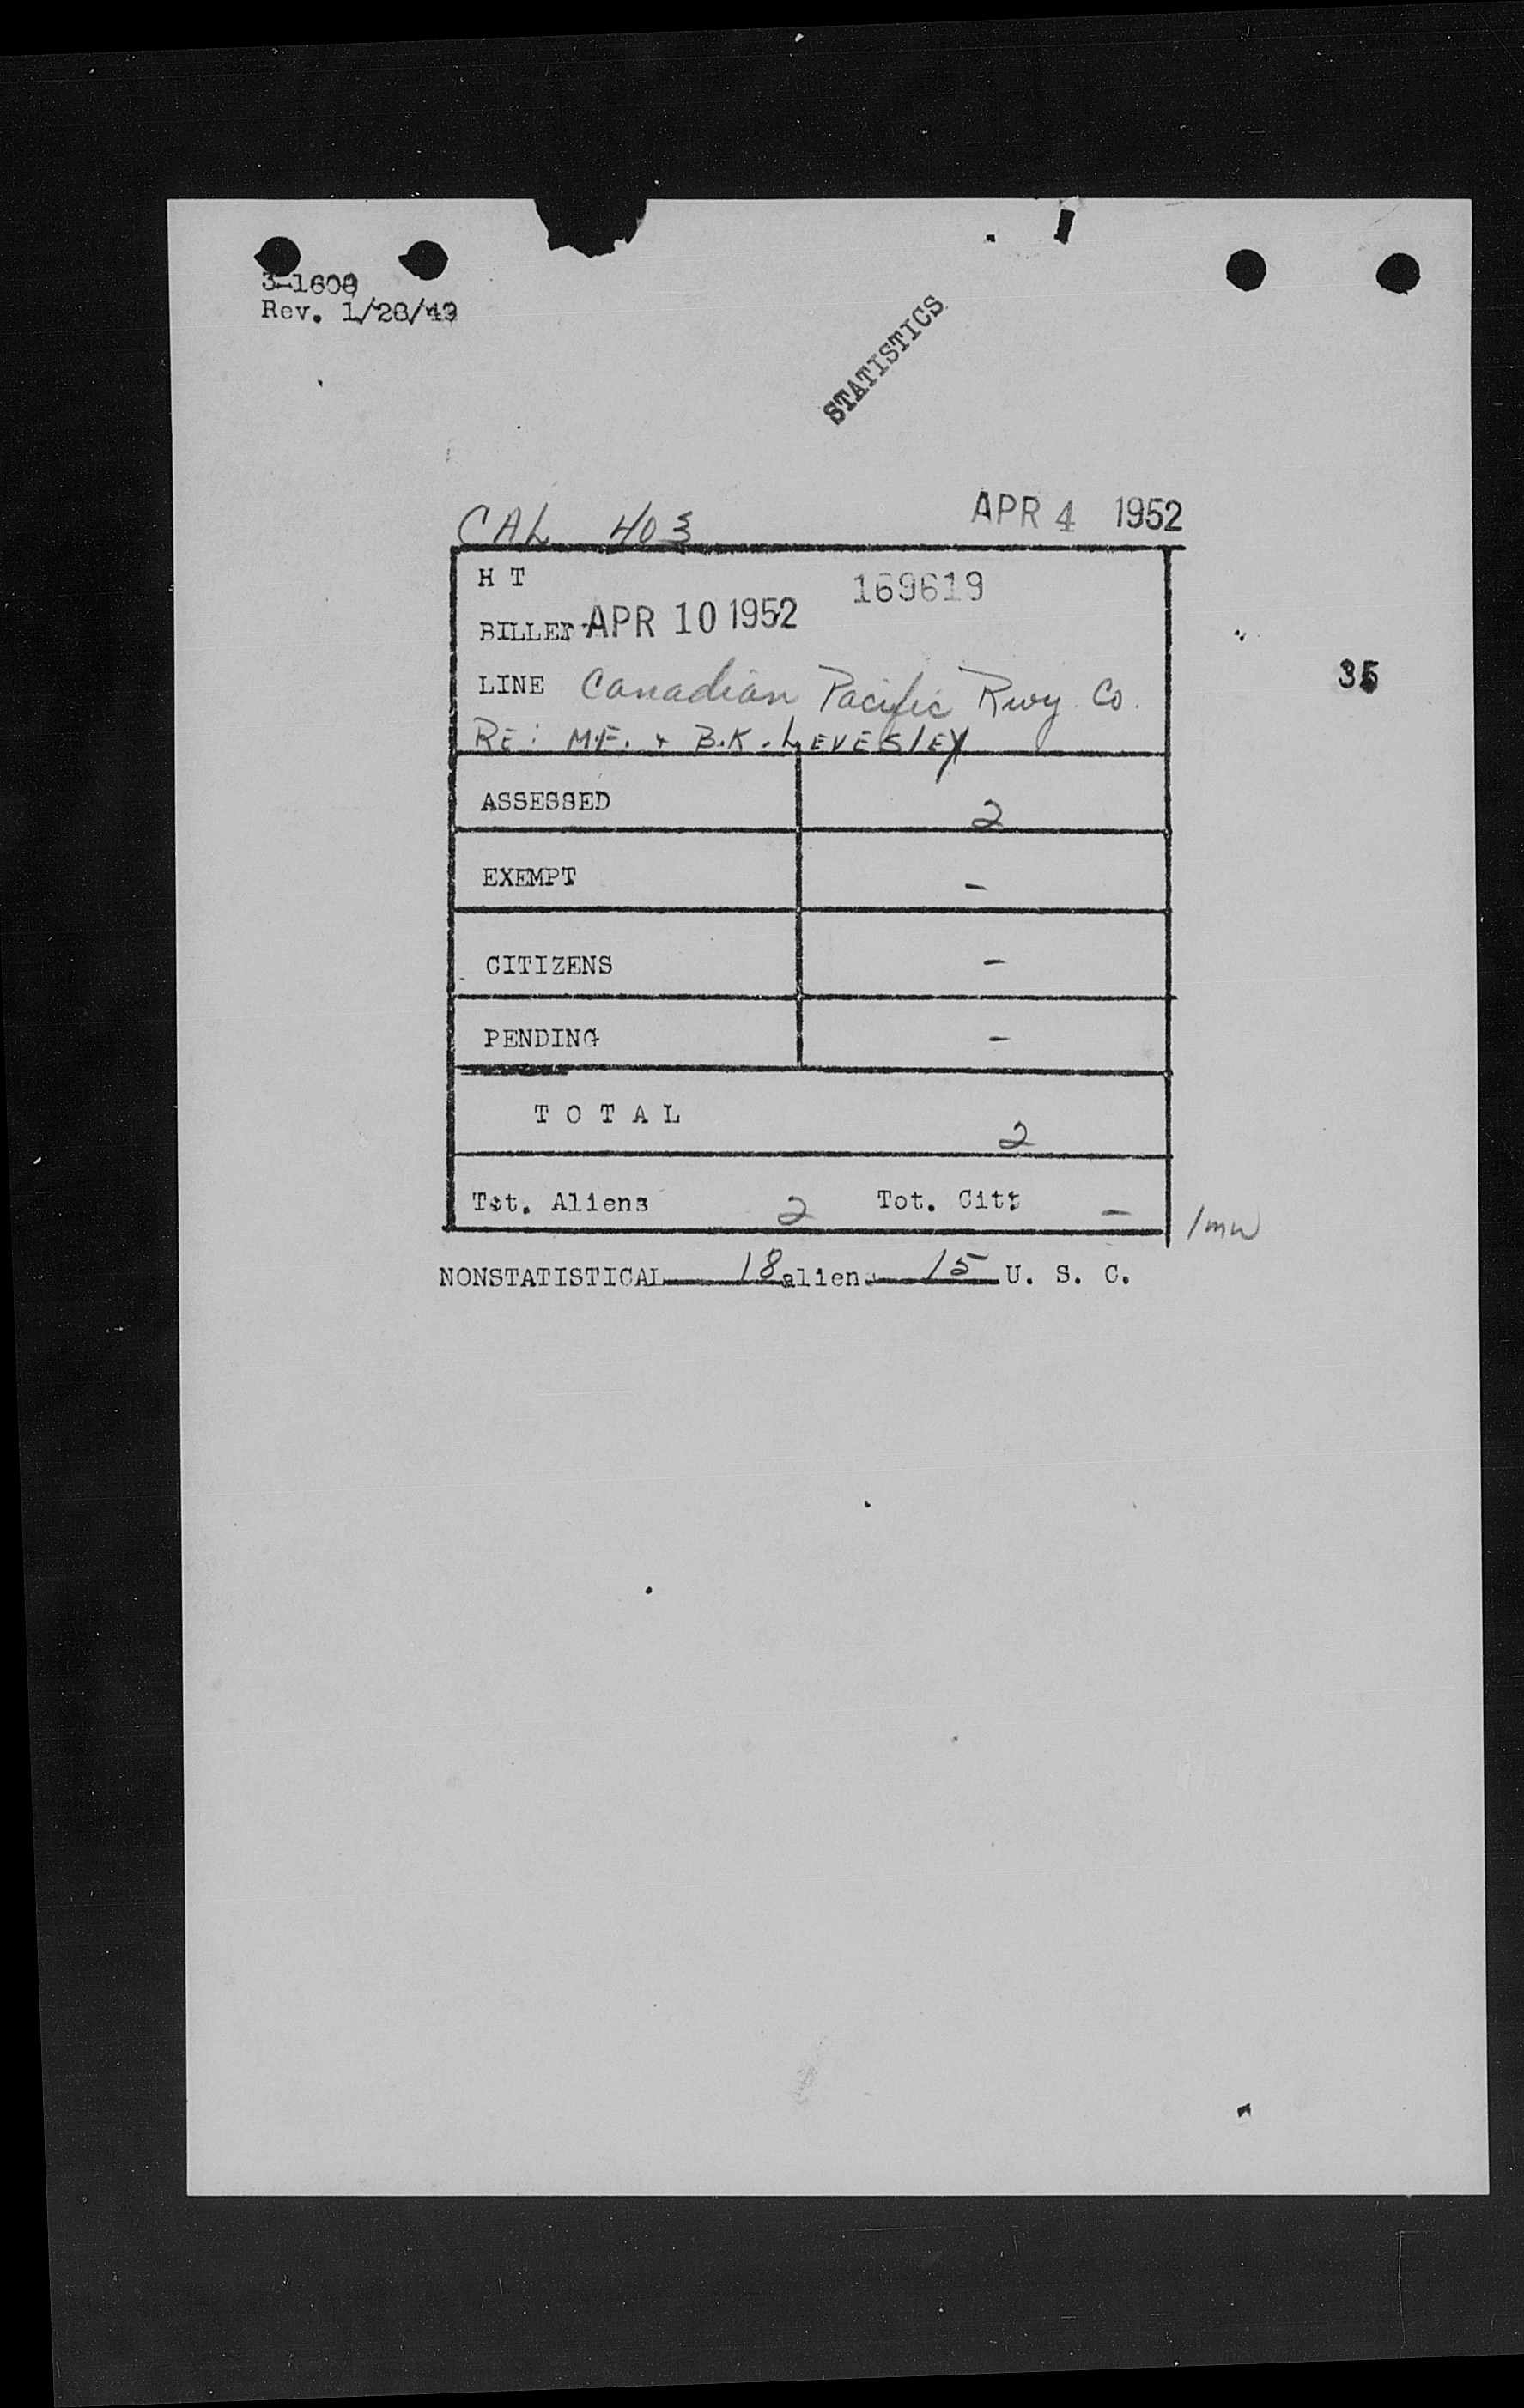 3-1608
Rev. 1/28/49
STATISTICS
CAL 403 APR 4 1952
H T 169619
BILLED APR 10 1952
LINE Canadian Pacific Rwy Co.
35
RE: M.F. + B.K. LEVESLEY
ASSESSED 2
EXEMPT -
CITIZENS -
PENDING -
T O T A L 2
Tot. Aliens 2 Tot. Cit: -
/mw
NONSTATISTICAL 18 alien 15 U. S. C.